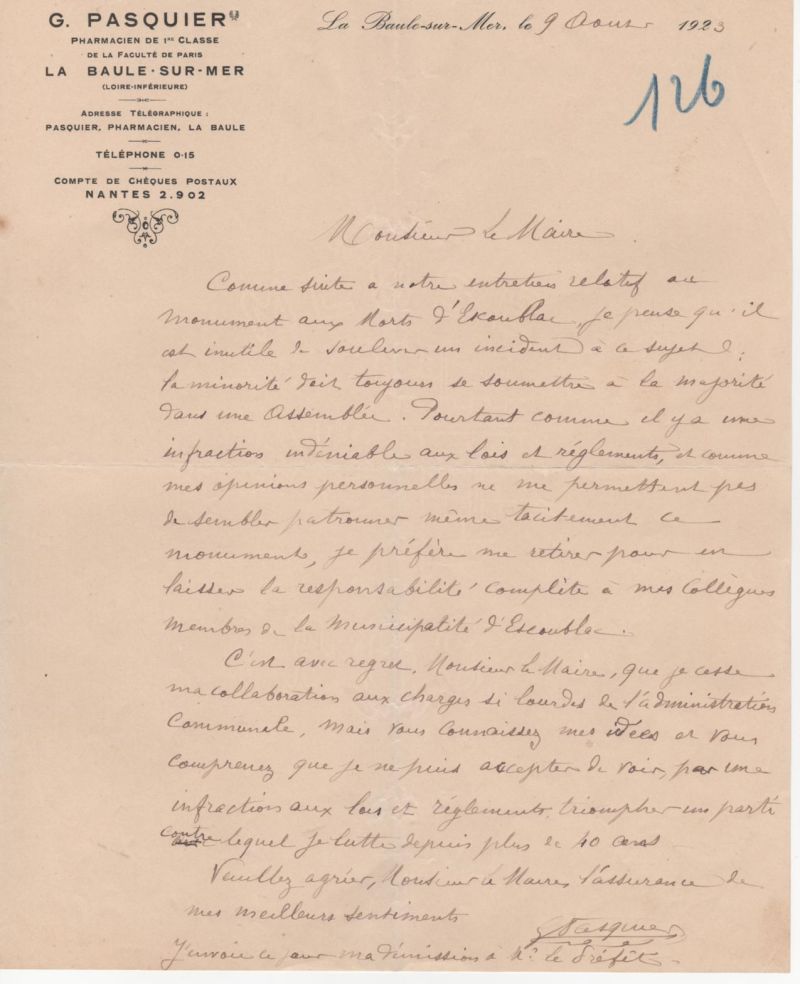 G. PASQUIER
PHARMACIEN DE 1RE CLASSE
DE LA FACULTÉ DE PARIS
LA BAULE-SUR-MER
(LOIRE-INFÉRIEURE)
ADRESSE TÉLÉGRAPHIQUE :
PASQUIER, PHARMACIEN, LA BAULE
TÉLÉPHONE 0-15
COMPTE DE CHÈQUES POSTAUX
NANTES 2.902
La Baule-sur-Mer, le 9 Aout 1923
126
Monsieur Le Maire
Comme suite a notre entretien relatif au
monument aux Morts d'Escoublac, je pense qu'il
est inutile de soulever un incident à ce sujet
la minorité doit toujours se soumettre à la majorité
dans une Assemblée. Pourtant comme il y a une
infraction indéniable aux lois et réglements, et comme
mes opinions personnelles ne me permettent pas
de sembler patronner même tacitement ce
monument, je préfère me retirer pour en
laisser la responsabilité complète à mes Collègues
membres de la Municipalité d'Escoublac.
C'est avec regret, Monsieur le Maire, que je cesse
ma collaboration aux charges si lourdes de l'administration
Communale, mais vous connaissez mes idées et vous
comprenez que je ne puis accepter de voir, par une
infraction aux lois et réglements, triompher un parti
contre lequel je lutte depuis plus de 40 ans
Veuillez agréer, Monsieur le Maire, l'assurance de
mes meilleurs sentiments
GPasquier
J'envoie ce jour ma démission à Mr. le Préfêt.